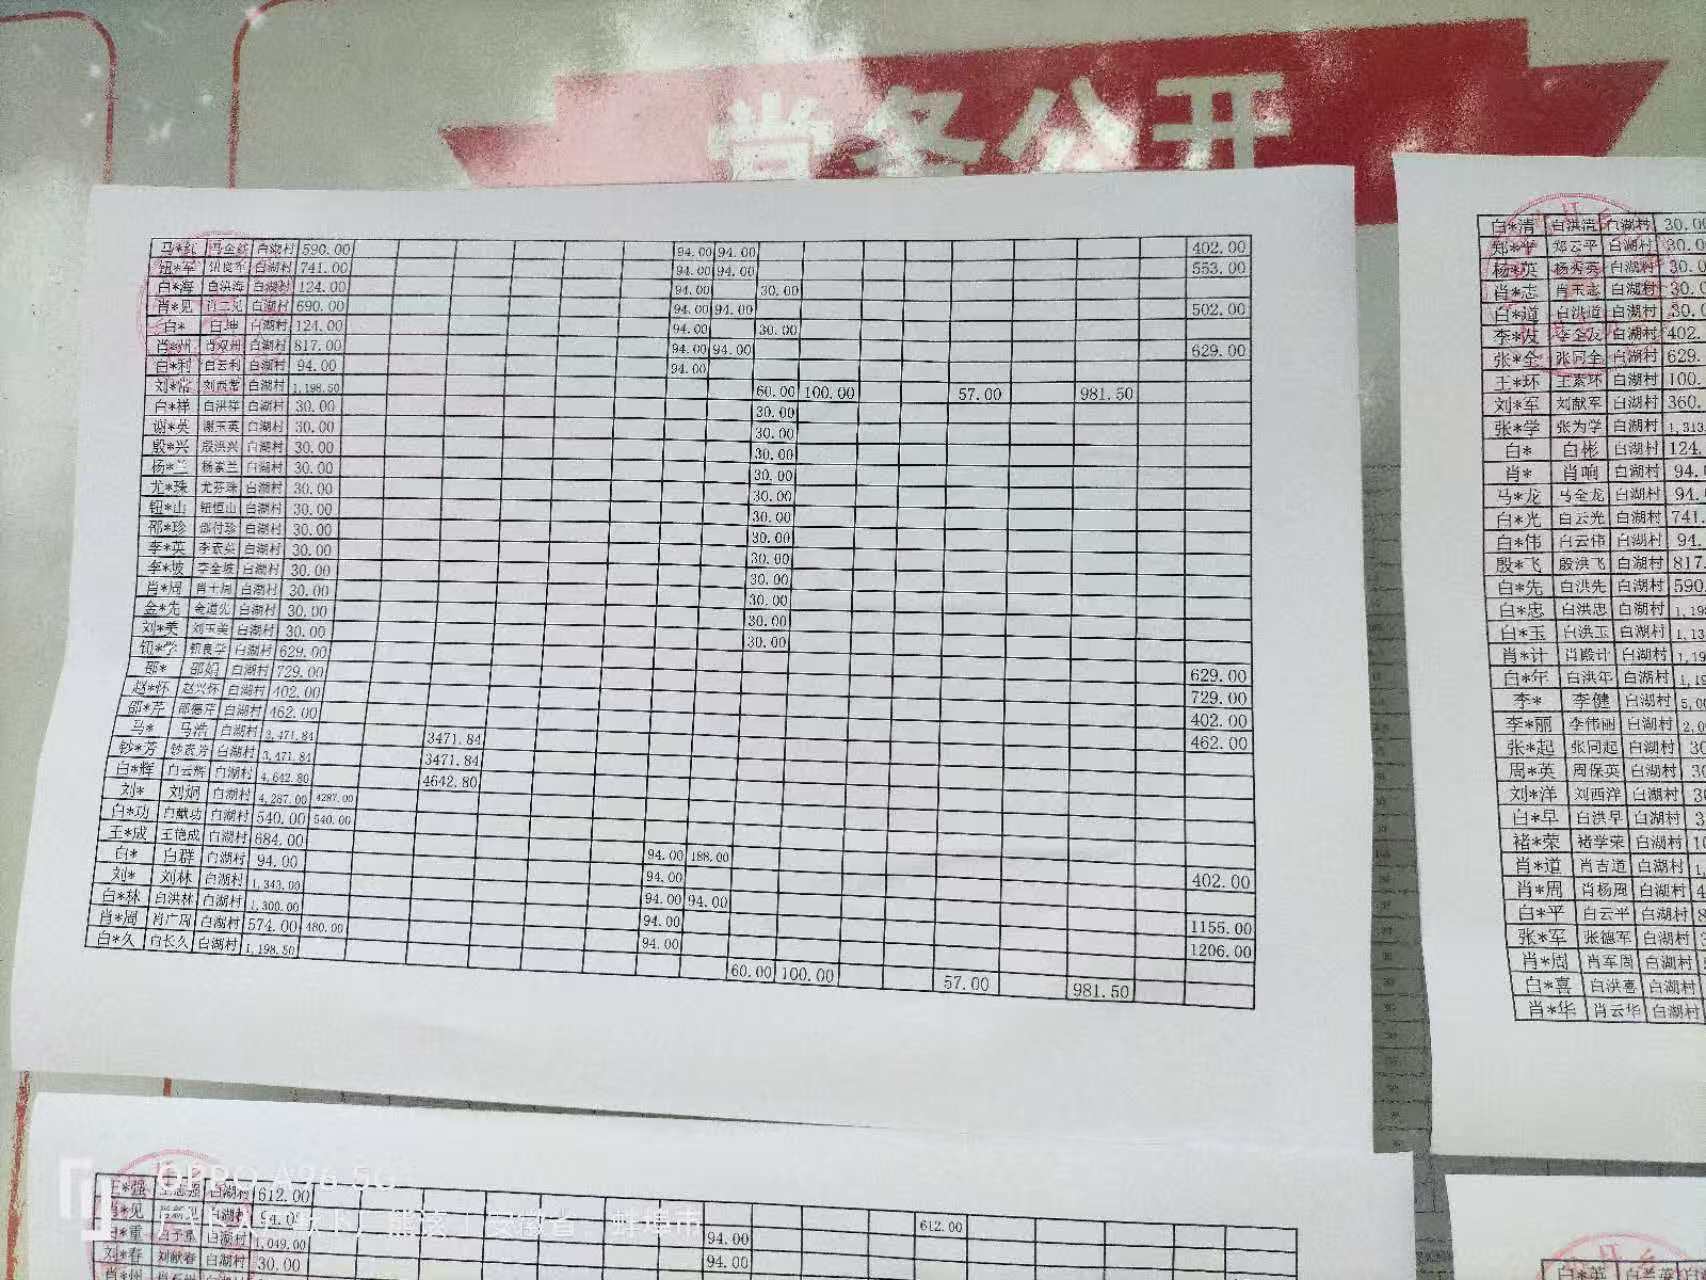 党务公开
马*红 马金红 白湖村 590.00 94.00 94.00 402.00
钮*军 钮良军 白湖村 741.00 94.00 94.00 553.00
白*海 白洪海 白湖村 124.00 94.00 30.00
肖*见 肖二见 白湖村 690.00 94.00 94.00 502.00
白* 白坤 白湖村 124.00 94.00 30.00
肖*州 肖双州 白湖村 817.00 94.00 94.00 629.00
白*利 白云利 白湖村 94.00 94.00
刘*常 刘西常 白湖村 1,198.50 60.00 100.00 57.00 981.50
白*祥 白洪祥 白湖村 30.00 30.00
谢*英 谢玉英 白湖村 30.00 30.00
殷*兴 殷洪兴 白湖村 30.00 30.00
杨*兰 杨素兰 白湖村 30.00 30.00
尤*珠 尤芬珠 白湖村 30.00 30.00
钮*山 钮恒山 白湖村 30.00 30.00
邵*珍 邵付珍 白湖村 30.00 30.00
李*英 李素英 白湖村 30.00 30.00
李*坡 李全坡 白湖村 30.00 30.00
肖*周 肖十周 白湖村 30.00 30.00
金*先 金道先 白湖村 30.00 30.00
刘*美 刘玉美 白湖村 30.00 30.00
钮*学 钮良学 白湖村 629.00 629.00
邵* 邵娟 白湖村 729.00 729.00
赵*怀 赵兴怀 白湖村 402.00 402.00
邵*芹 邵德芹 白湖村 462.00 462.00
马* 马浩 白湖村 3,471.84 3471.84
钞*芳 钞素芳 白湖村 3,471.84 3471.84
白*辉 白云辉 白湖村 4,642.80 4642.80
刘* 刘炯 白湖村 4,287.00 4287.00
白*功 白献功 白湖村 540.00 540.00
王*成 王艳成 白湖村 684.00 94.00 188.00 402.00
白* 白群 白湖村 94.00 94.00
刘* 刘林 白湖村 1,343.00 94.00 94.00 1155.00
白*林 白洪林 白湖村 1,300.00 94.00 1206.00
肖*周 肖广周 白湖村 574.00 480.00 94.00
白*久 白长久 白湖村 1,198.50 60.00 100.00 57.00 981.50
白*清 白洪清 白湖村 30.00
郑*平 郑云平 白湖村 30.0
杨*英 杨秀英 白湖村 30.0
肖*志 肖玉志 白湖村 30.0
白*道 白洪道 白湖村 30.0
李*友 李全友 白湖村 402.
张*全 张同全 白湖村 629.
王*环 王素环 白湖村 100.
刘*军 刘献军 白湖村 360.
张*学 张为学 白湖村 1,313.
白* 白彬 白湖村 124.
肖* 肖响 白湖村 94.
马*龙 马金龙 白湖村 94.
白*光 白云光 白湖村 741.
白*伟 白云伟 白湖村 94.
殷*飞 殷洪飞 白湖村 817.
白*先 白洪先 白湖村 590
白*忠 白洪忠 白湖村 1,19
白*玉 白洪玉 白湖村 1,13
肖*计 肖殿计 白湖村 1,19
白*年 白洪年 白湖村 1,19
李* 李健 白湖村 5,00
李*丽 李伟丽 白湖村 2,0
张*起 张同起 白湖村 30
周*英 周保英 白湖村 30
刘*洋 刘西洋 白湖村 30
白*早 白洪早 白湖村 3
褚*荣 褚学荣 白湖村 10
肖*道 肖吉道 白湖村 1,
肖*周 肖杨周 白湖村 4
白*平 白云平 白湖村 8
张*军 张德军 白湖村
肖*周 肖军周 白湖村
白*喜 白洪喜 白湖村
肖*华 肖云华 白湖村
王*强 白湖村 612.00 612.00
肖*见 白湖村 94.00 94.00
白*重 白湖村 1,049.00 94.00
刘*春 刘献春 白湖村 30.00
肖*州
白*英
OPPO A96 5G
安徽省 蚌埠市